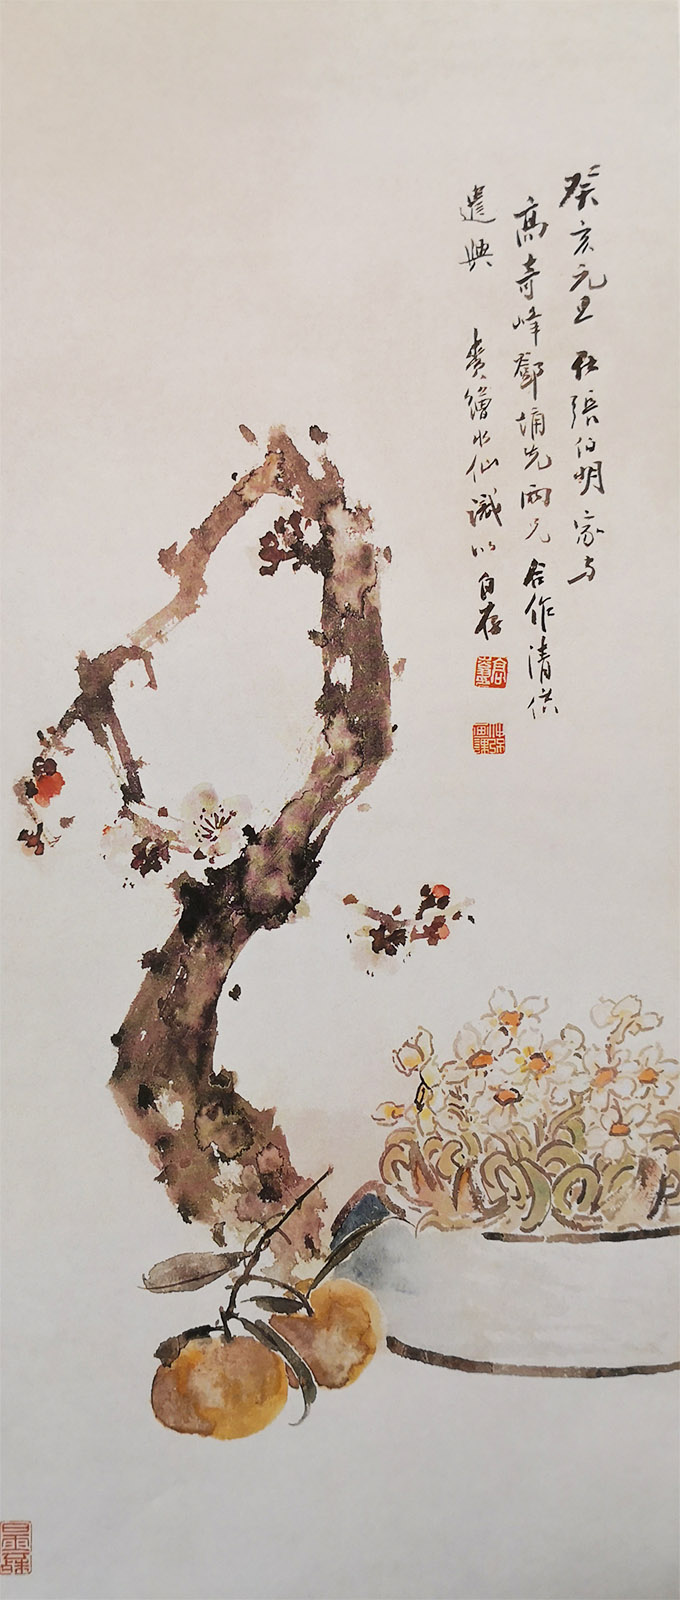 癸亥元旦在張伯明家与
高奇峰鄧誦先兩兄合作清供
遣興 蕡繪水仙識以自存